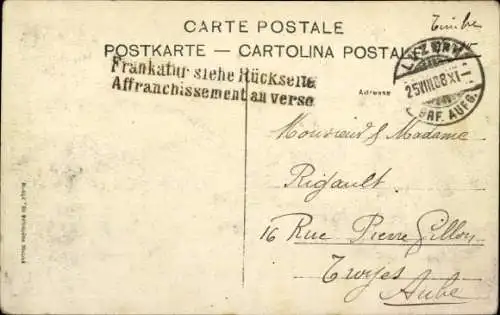 CARTE POSTALE
POSTKARTE — CARTOLINA POSTALE
Timbre
Frankatur siehe Rückseite
Affranchissement au verso
Adresse
LUZERN
25.VIII.08.XI-
BRF. AUFG.
Monsieur & Madame
Rigault
16 Rue Pierre Gillon
Troyes
Aube